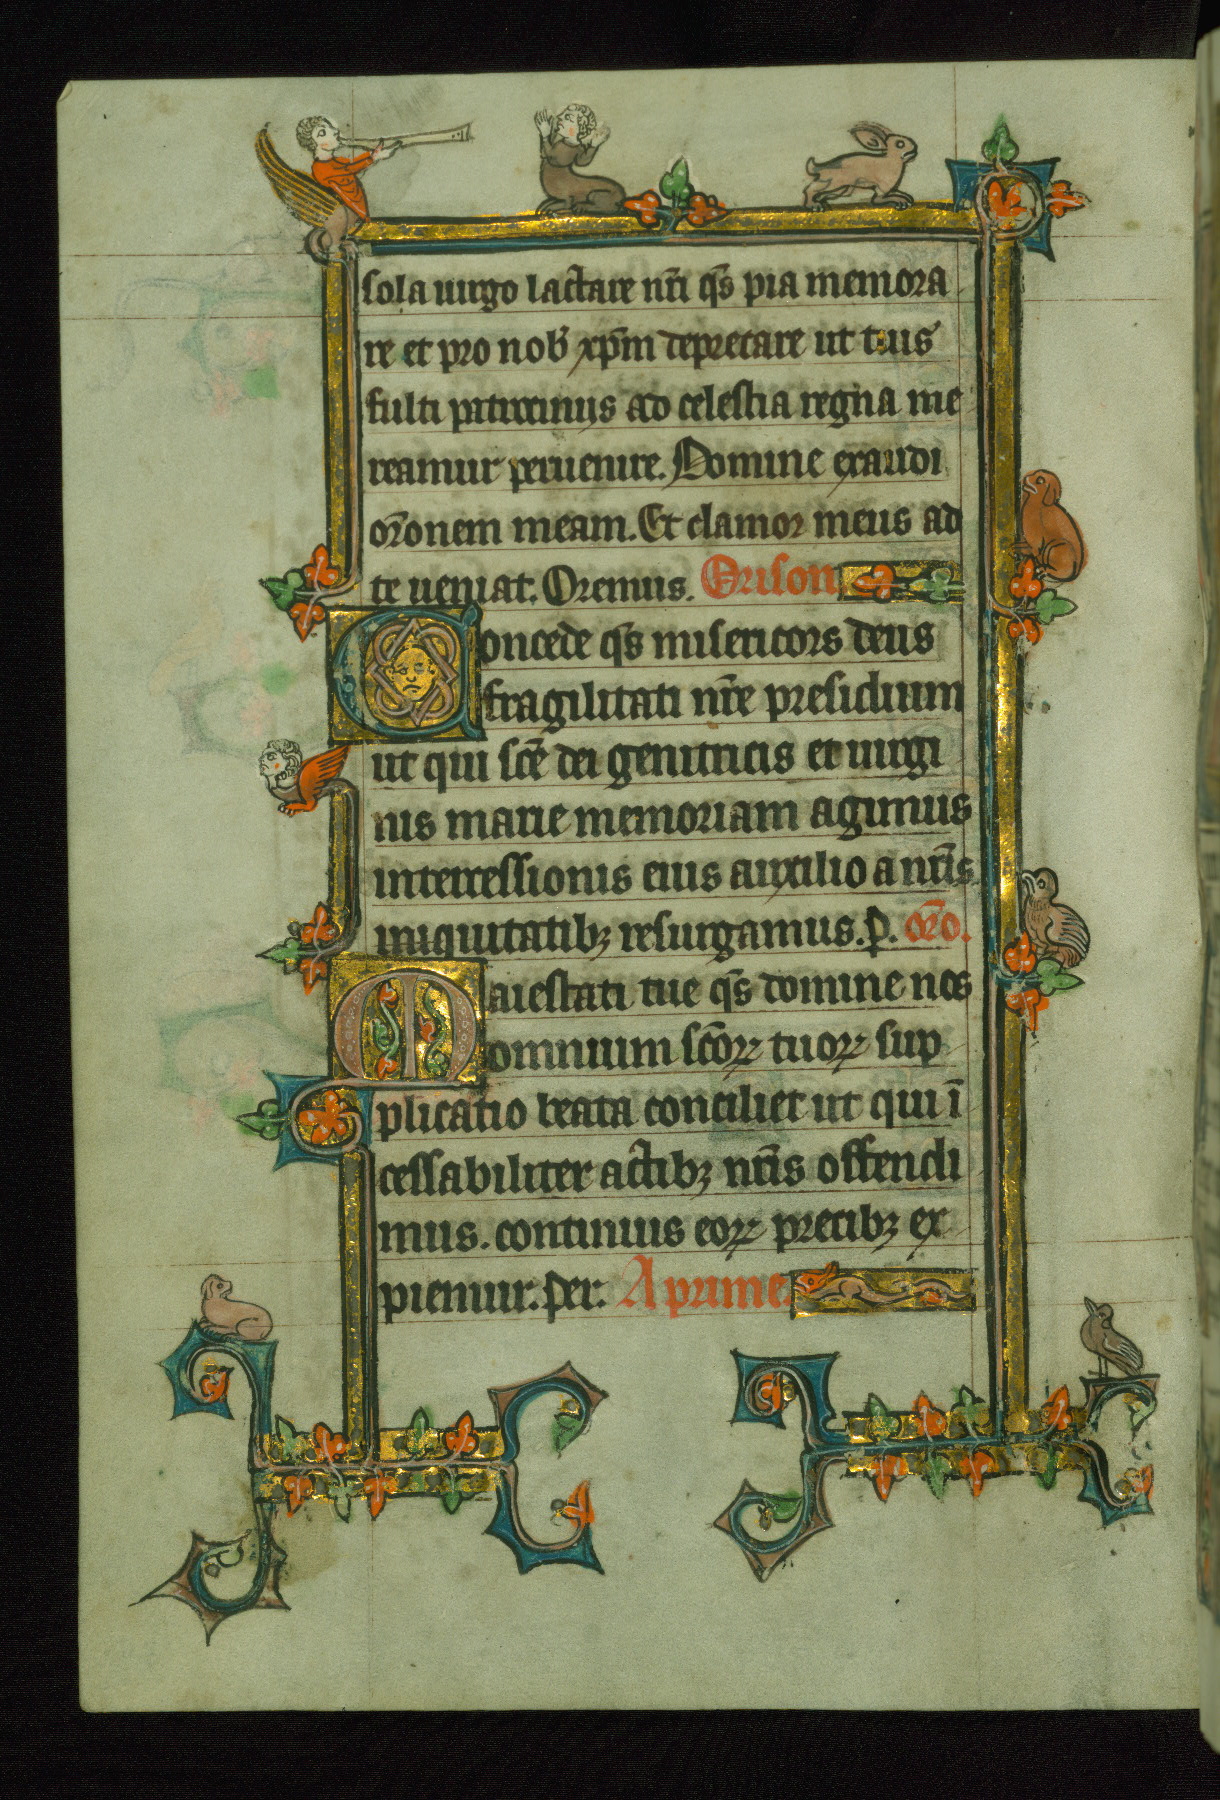 sola uirgo lactare nr̄i q̄s pia memora
re et pro nob̾ xp̄m deprecare ut tuis
fulti patrociniis ad celestia regna me
reamur peruenire. Domine exaudi
or̄onem meam. Et clamor meus ad
te ueniat. Oremus. Orison
Concede q̄s misericors deus
fragilitati nr̄e presidium
ut qui sc̄e dei genitricis et uirgi
nis marie memoriam agimus
intercessionis eius auxilio a nr̄is
iniquitatibꝫ resurgamus. P. or̄o.
Maiestati tue q̄s domine nos
omnium sc̄oꝝ tuoꝝ sup
plicatio beata conciliet ut qui ī
cessabiliter actibꝫ nr̄is offendi
mus. continuis eoꝝ precibꝫ ex
piemur. Per. A prime.